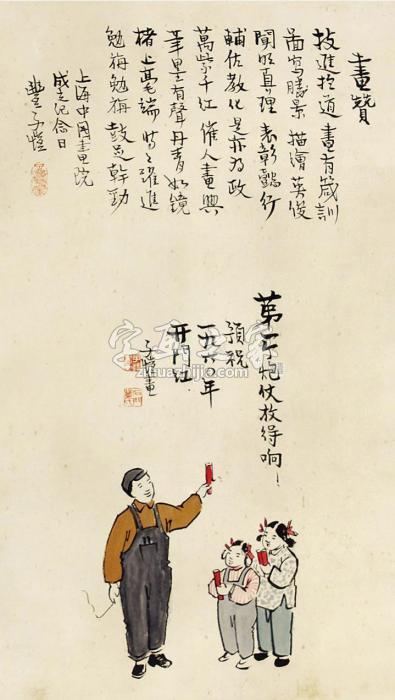 畫贊
技進於道 畫有箴訓
圖寫勝景 描繪英俊
闡明真理 表彰懿行
輔佐教化 是亦為政
萬紫千红 催人畫興
筆墨有聲 丹青如鏡
楮上毫端 時々躍進
勉旃勉旃 鼓足幹勁
上海中國畫院
成立纪念日
豐子愷
第一个炮仗放得响！
預祝
一九六〇年
开门红
子愷畫
字画之家
zihuazhijia.com